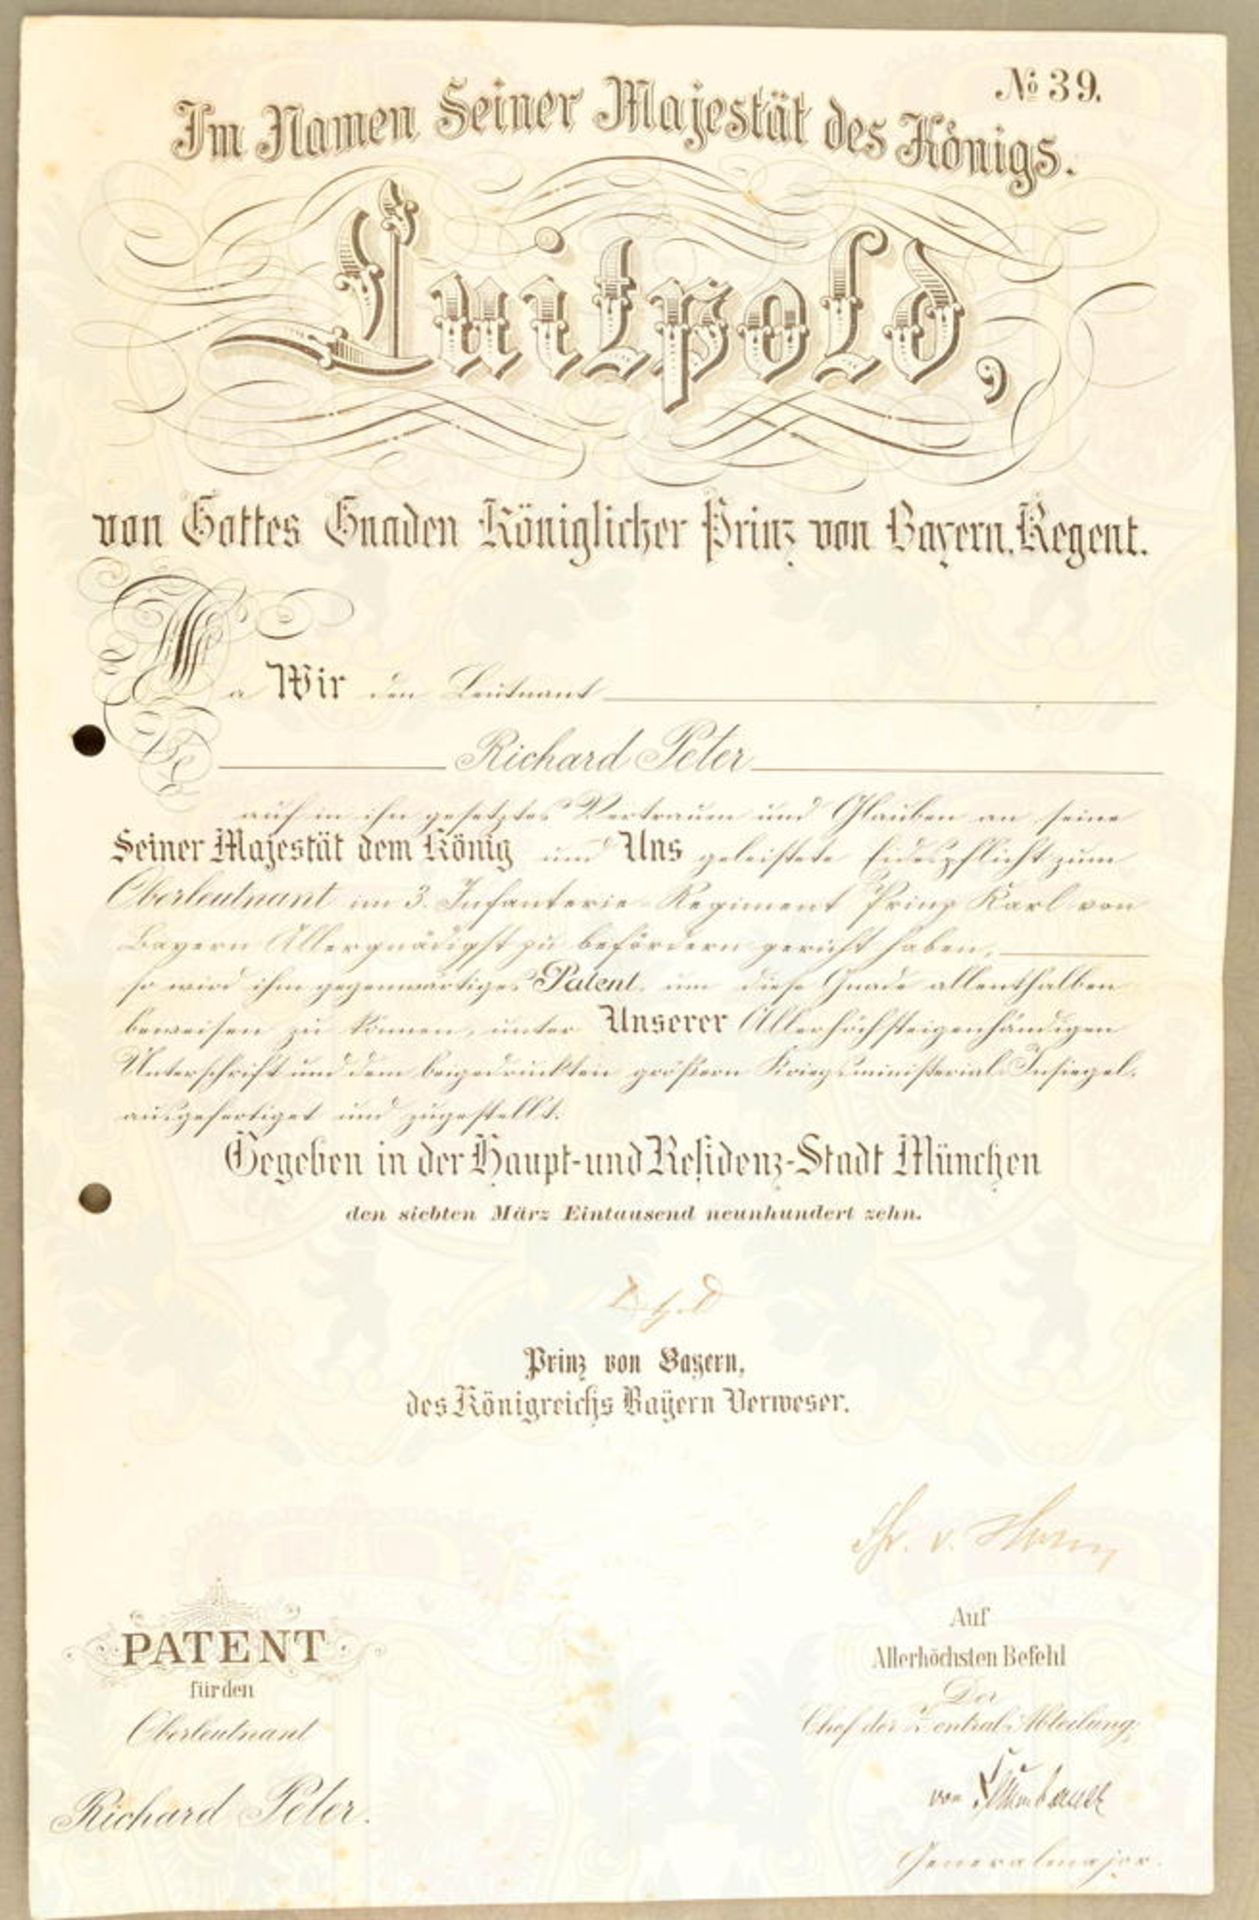 № 39.
Im Namen Seiner Majestät des Königs.
Luitpold,
von Gottes Gnaden Königlicher Prinz von Bayern, Regent.
Da Wir den Leutnant
Richard Peter
auf in ihn gesetztes Vertrauen und Glauben an seine
Seiner Majestät dem König und Uns geleistete Eidespflicht zum
Oberleutnant im 3. Infanterie-Regiment Prinz Karl von
Bayern Allergnädigst zu befördern geruht haben,
so wird ihm gegenwärtiges Patent, um diese Gnade allenthalben
beweisen zu können, unter Unserer Allerhöchsteigenhändigen
Unterschrift und dem beigedruckten größern Kriegsministerial-Insiegel,
ausgefertiget und zugestellt.
Gegeben in der Haupt-und Residenz-Stadt München
den siebten März Eintausend neunhundert zehn.
Prinz von Bayern,
des Königreichs Bayern Verweser.
Fhr. v. Horn
PATENT
für den
Oberleutnant
Richard Peter.
Auf
Allerhöchsten Befehl
Der
Chef der Zentral-Abteilung,
von
Generalmajor.